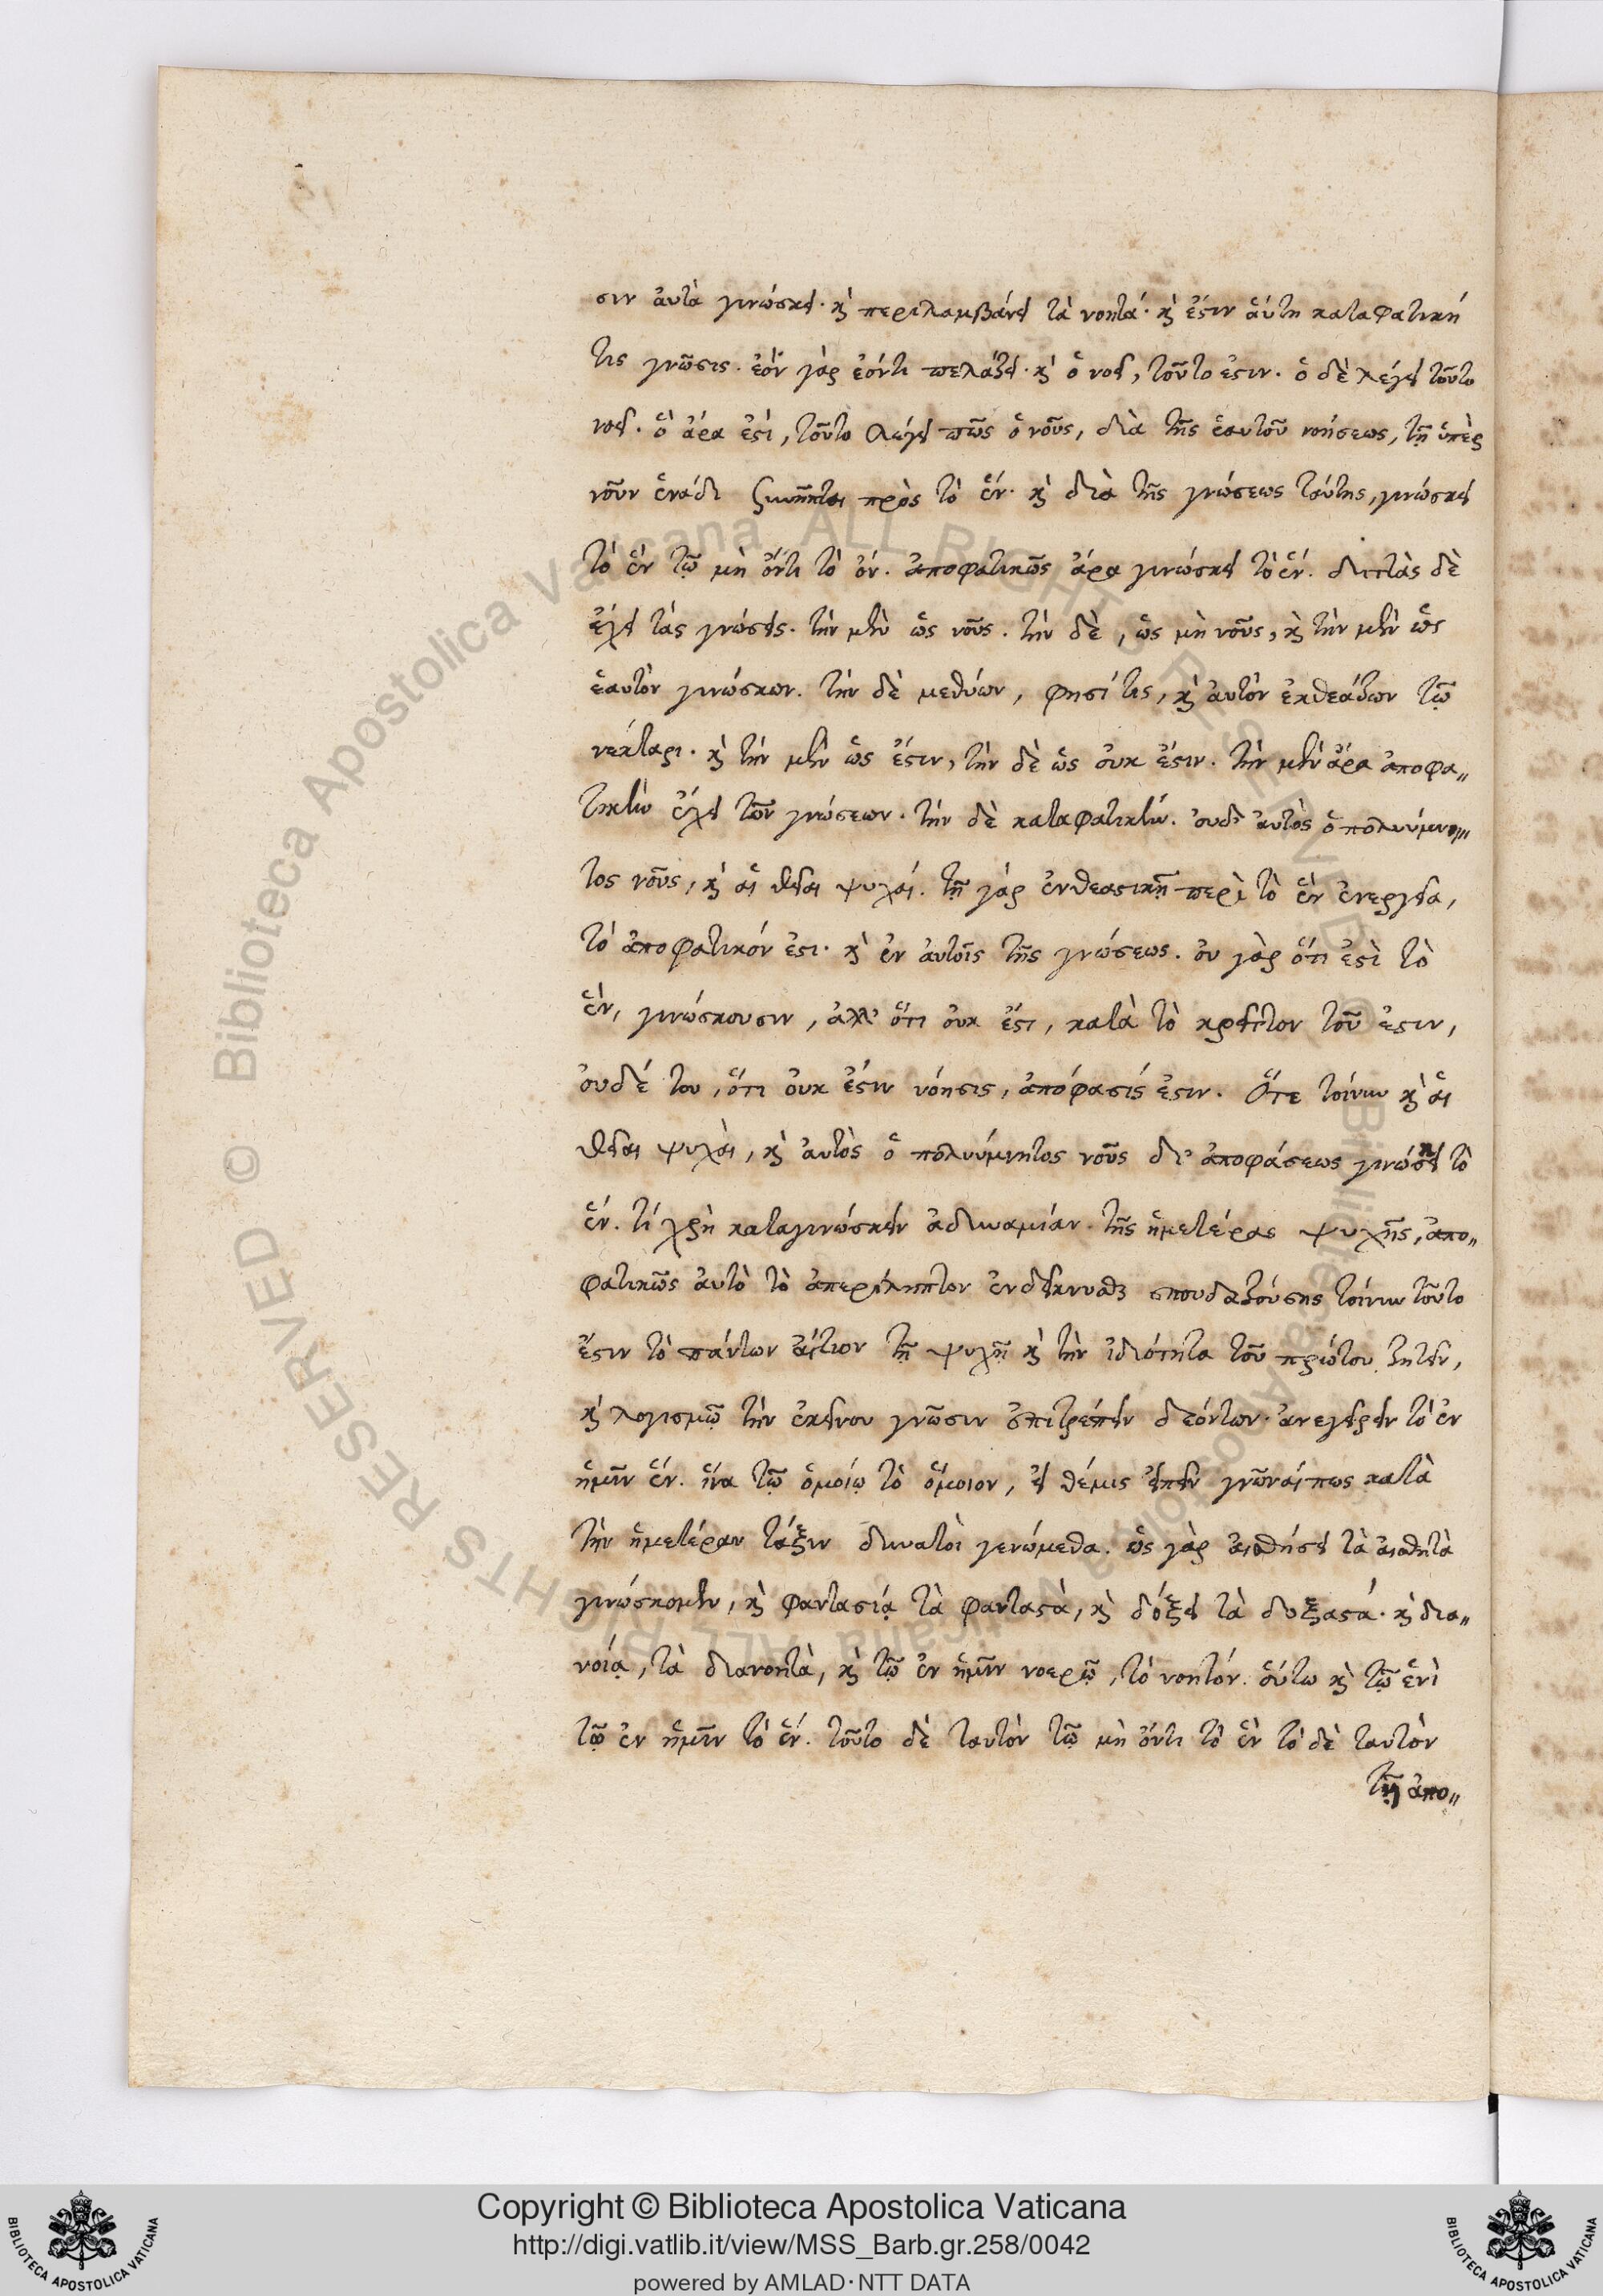 σιν ἀυτὰ γινώσκει. κὶ περιλαμβάνει τὰ νοητά. κὶ ἔστιν ἅυτη καταφατική
τις γνῶσις. ἐὸν γὰρ ἐόντι πελάζει. κὶ ὃ νοεῖ, τοῦτο ἐστιν. ὃ δὲ λέγει τοῦτο
νοεῖ. ὃ ἄρα ἐστὶ, τοῦτο λέγει πῶς ὁ νοῦς, διὰ τῆς ἑαυτοῦ νοήσεως, τῇ ὑπὲρ
νοῦν ἑνάδι συνῆπται πρὸς τὸ ἕν. κὶ διὰ τῆς γνώσεως ταύτης, γινώσκει
τὸ ἓν τῷ μὴ ὄντι τὸ ὄν. ἀποφατικῶς ἄρα γινώσκει τὸ ἕν. διττὰς δὲ
ἔχει τὰς γνώσεις. τὴν μὲν ὡς νοῦς. τὴν δὲ, ὡς μὴ νοῦς, κὶ τὴν μὲν ὡς
ἑαυτὸν γινώσκων. τὴν δὲ μεθύων, φησί τις, κὶ ἀυτὸν ἐκθεάζων τῷ
νεκταρι. κὶ τὴν μὲν ὡς ἔστιν, τὴν δὲ ὡς ὀυκ ἔστιν. τὴν μὲν ἄρα ἀποφα„
τικὴν ἔχει τῶν γνώσεων. τὴν δὲ καταφατικήν. ὀυδ' ἀυτὸς ὁ πολυύμνη„
τος νοῦς, κὶ ἁι θεῖαι ψυχάι. τῇ γὰρ ἐνθεαστικῇ περὶ τὸ ἓν ἐνεργεία,
τὸ ἀποφατικόν ἐστι. κὶ ἐν ἀυτοῖς τῆς γνώσεως. ὀυ γὰρ ὅτι ἐστὶ τὸ
ἓν, γινώσκουσιν, ἀλλ' ὅτι ὀυκ ἔστι, κατὰ τὸ κρεῖττον τοῦ ἐστιν,
ὀυδέ του, ὅτι ὀυκ ἔστιν νόησις, ἀπόφασίς ἐστιν. Ὅτε τοίνυν κὶ ἁι
θεῖαι ψυχὰι, κὶ ἀυτὸς ὁ πολυύμνητος νοῦς δι' ἀποφάσεως γινώσκει τὸ
ἕν. τί χρὴ καταγινώσκειν ἀδυναμίαν τῆς ἡμετέρας ψυχῆς, ἀπο„
φατικῶς ἀυτὸ τὸ ἀπερίληπτον ἐνδείκνυσθαι σπουδαζούσης τοίνυν τοῦτο
ἔστιν τὸ πάντων ἄιτιον τῇ ψυχῇ κὶ τὴν ἰδιότητα τοῦ πρώτου ζητεῖν,
κὶ λογισμῷ τὴν ἐκείνου γνῶσιν ἐπιτρέπειν δεόντων. ἀνεγείρειν τὸ ἐν
ἡμῖν ἕν. ἵνα τῷ ὁμοίῳ τὸ ὅμοιον, ἐι θέμις ἐιπεῖν γνῶναί πως κατὰ
τὴν ἡμετέραν τάξιν δυνατοὶ γενώμεθα. ὡς γὰρ ἀισθήσει τὰ ἀισθητὰ
γινώσκομεν, κὶ φαντασίᾳ τὰ φανταστὰ, κὶ δόξει τὰ δοξαστά. κὶ δια„
νοίᾳ, τὰ διανοητὰ, κὶ τῷ ἐν ἡμῖν νοερῷ, τὸ νοητόν. ὅυτω κὶ τῷ ἑνὶ
τῷ ἐν ἡμῖν τὸ ἕν. τοῦτο δὲ ταυτὸν τῷ μὴ ὄντι τὸ ἓν τὸ δὲ ταυτὸν
τῇ ἀπο„
Copyright © Biblioteca Apostolica Vaticana
http://digi.vatlib.it/view/MSS_Barb.gr.258/0042
powered by AMLAD·NTT DATA